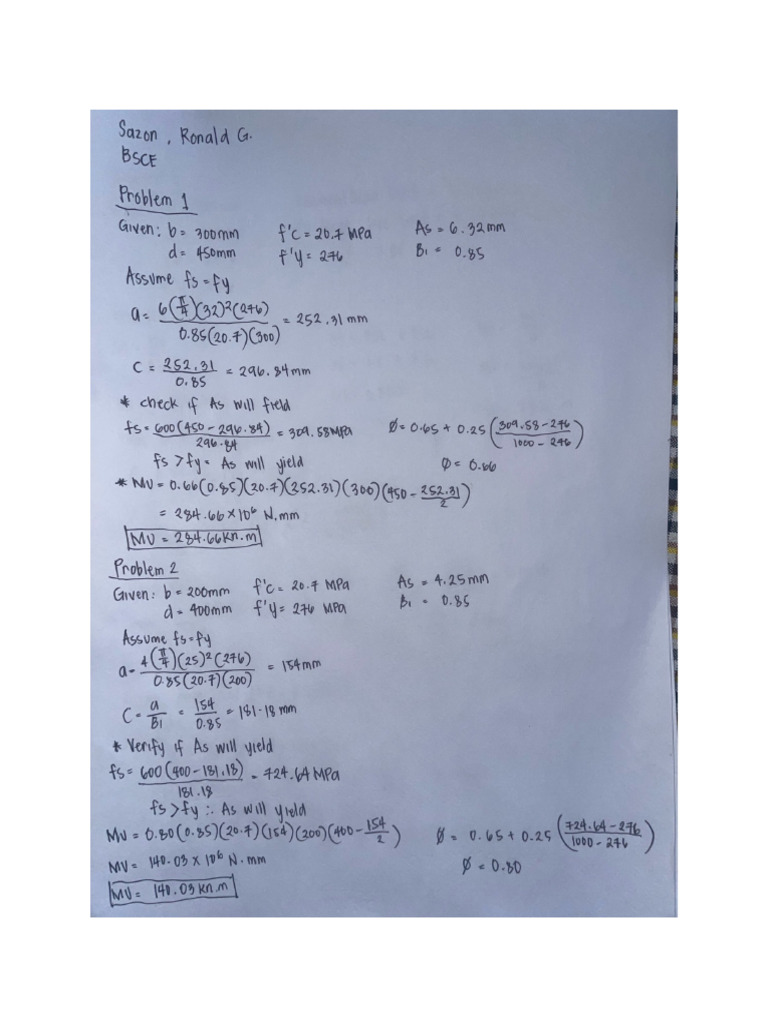 Sazon, Ronald G.
BSCE
Problem 1
Given: b = 300mm f'c = 20.7 MPa As = 6.32 mm
d = 450mm f'y = 276 B1 = 0.85
Assume fs = fy
a = 6(π/4)(32)²(276) / 0.85(20.7)(300) = 252.31 mm
C = 252.31 / 0.85 = 296.84mm
* check if As will field
fs = 600(450 - 296.84) / 296.84 = 309.58MPa Ø = 0.65 + 0.25 (309.58 - 276 / 1000 - 276)
fs > fy = As will yield Ø = 0.66
* MU = 0.66(0.85)(20.7)(252.31)(300)(450 - 252.31/2)
= 284.66 x 10⁶ N.mm
MU = 284.66kn.m
Problem 2
Given: b = 200mm f'c = 20.7 MPa As = 4.25mm
d = 400mm f'y = 276 MPa B1 = 0.85
Assume fs = fy
a = 4(π/4)(25)²(276) / 0.85(20.7)(200) = 154mm
C = a / B1 = 154 / 0.85 = 181.18 mm
* Verify if As will yield
fs = 600(400 - 181.18) / 181.18 = 724.64 MPa
fs > fy ∴ As will yield
MU = 0.80(0.85)(20.7)(154)(200)(400 - 154/2) Ø = 0.65 + 0.25 (724.64 - 276 / 1000 - 276)
MU = 140.03 x 10⁶ N.mm Ø = 0.80
MU = 140.03 kn.m